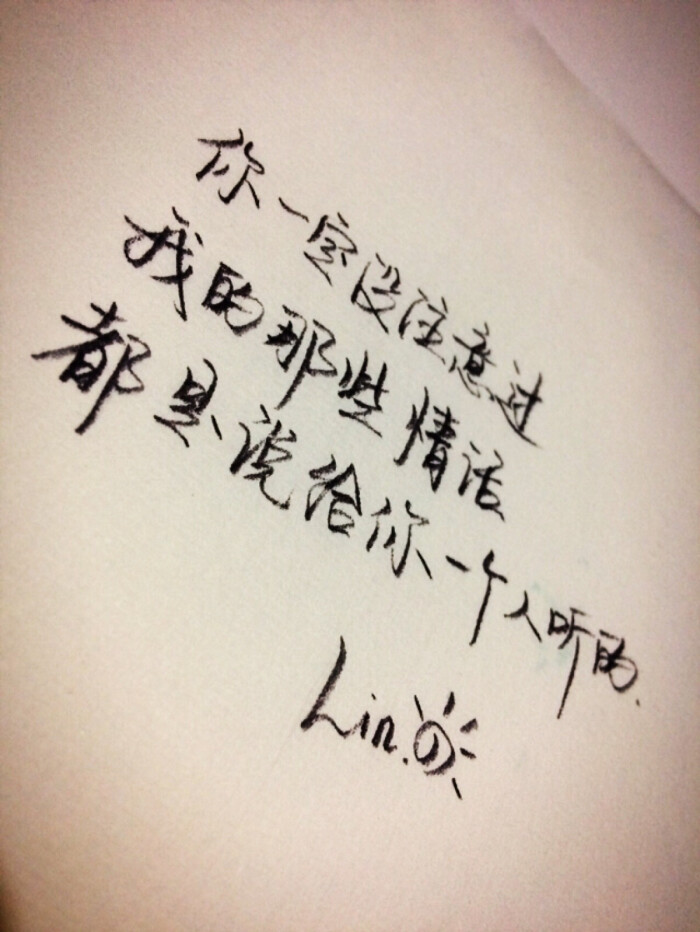 你一定没注意过
我的那些情话
都是说给你一个人听的.
Lin.